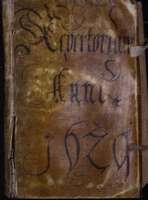 Repertorium
Anni
1629